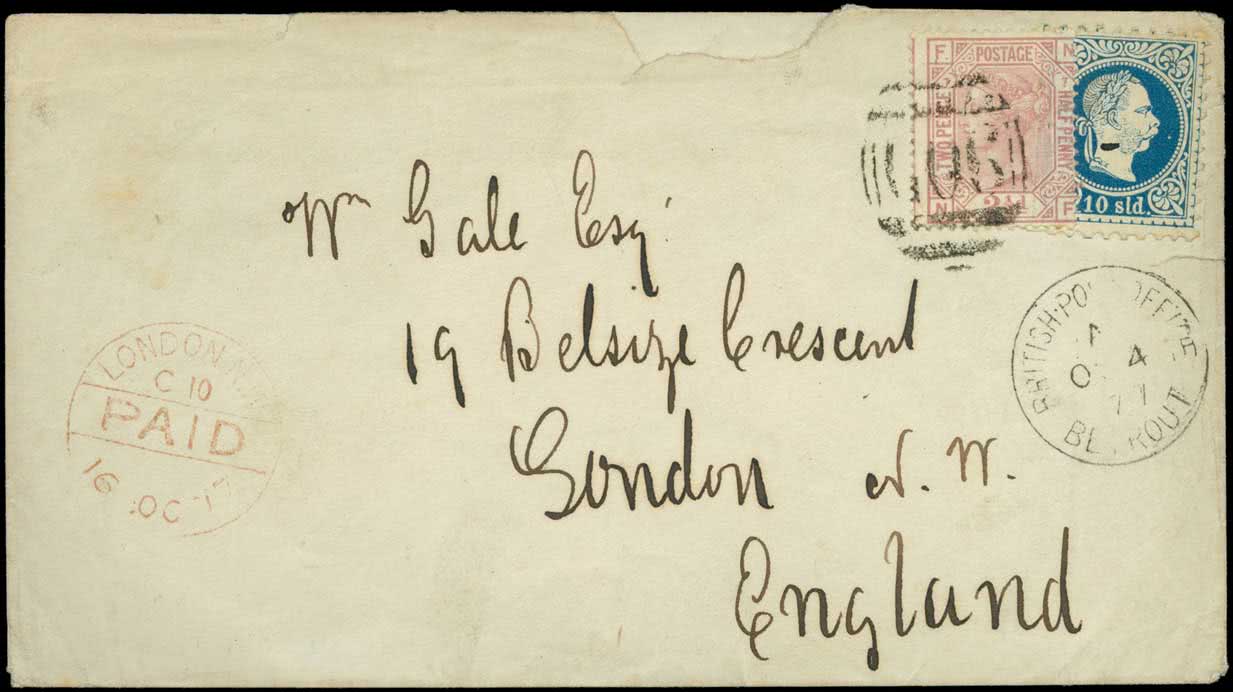 F POSTAGE N
TWO PENCE
HALF PENNY
N 2½d F
10 sld.
G06
Wm Gale Esq
19 Belsize Crescent
London N. W.
England
BRITISH POST OFFICE
A
OC 4
77
BEYROUT
LONDON N.
C 10
PAID
16 OC 77